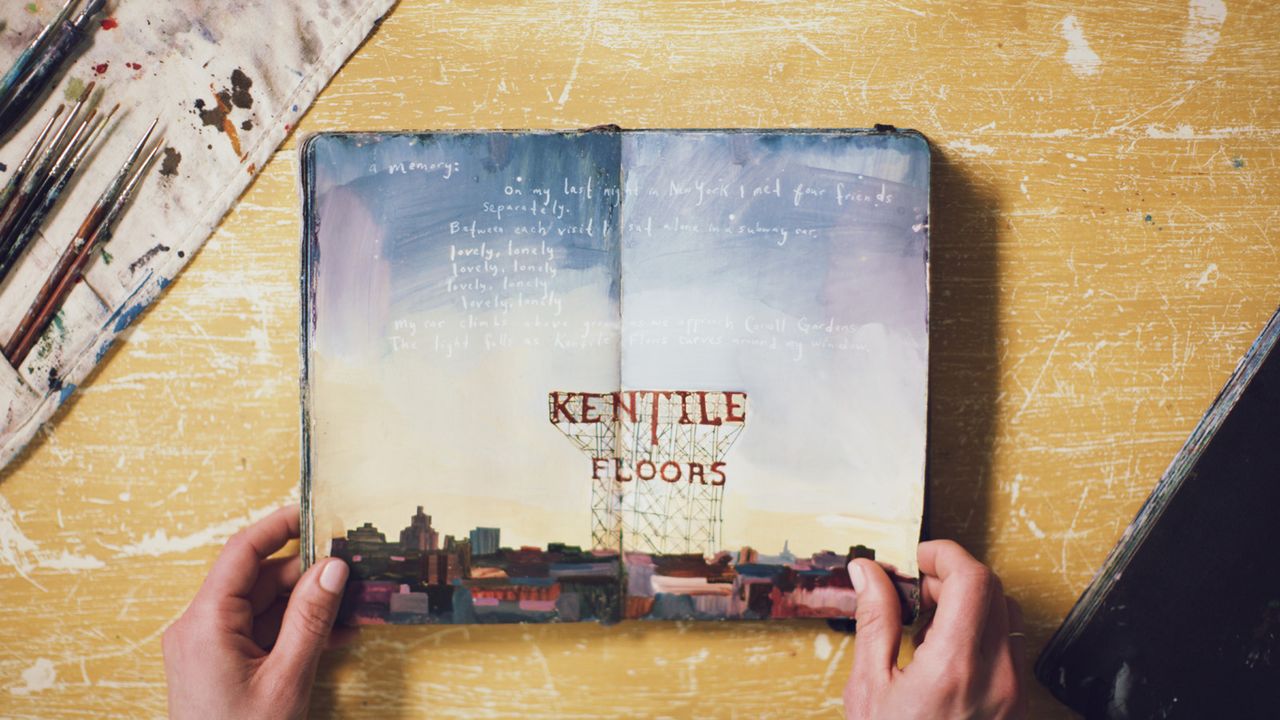 a memory:
On my last night in New York I met four friends
separately.
Between each visit I sat alone in a subway car.
lovely, lonely
lovely, lonely
lovely, lonely,
lovely, lonely
My car climbs above ground as we approach Caroll Gardens
The light falls as Kentile Floors curves around my window.
KENTILE
FLOORS